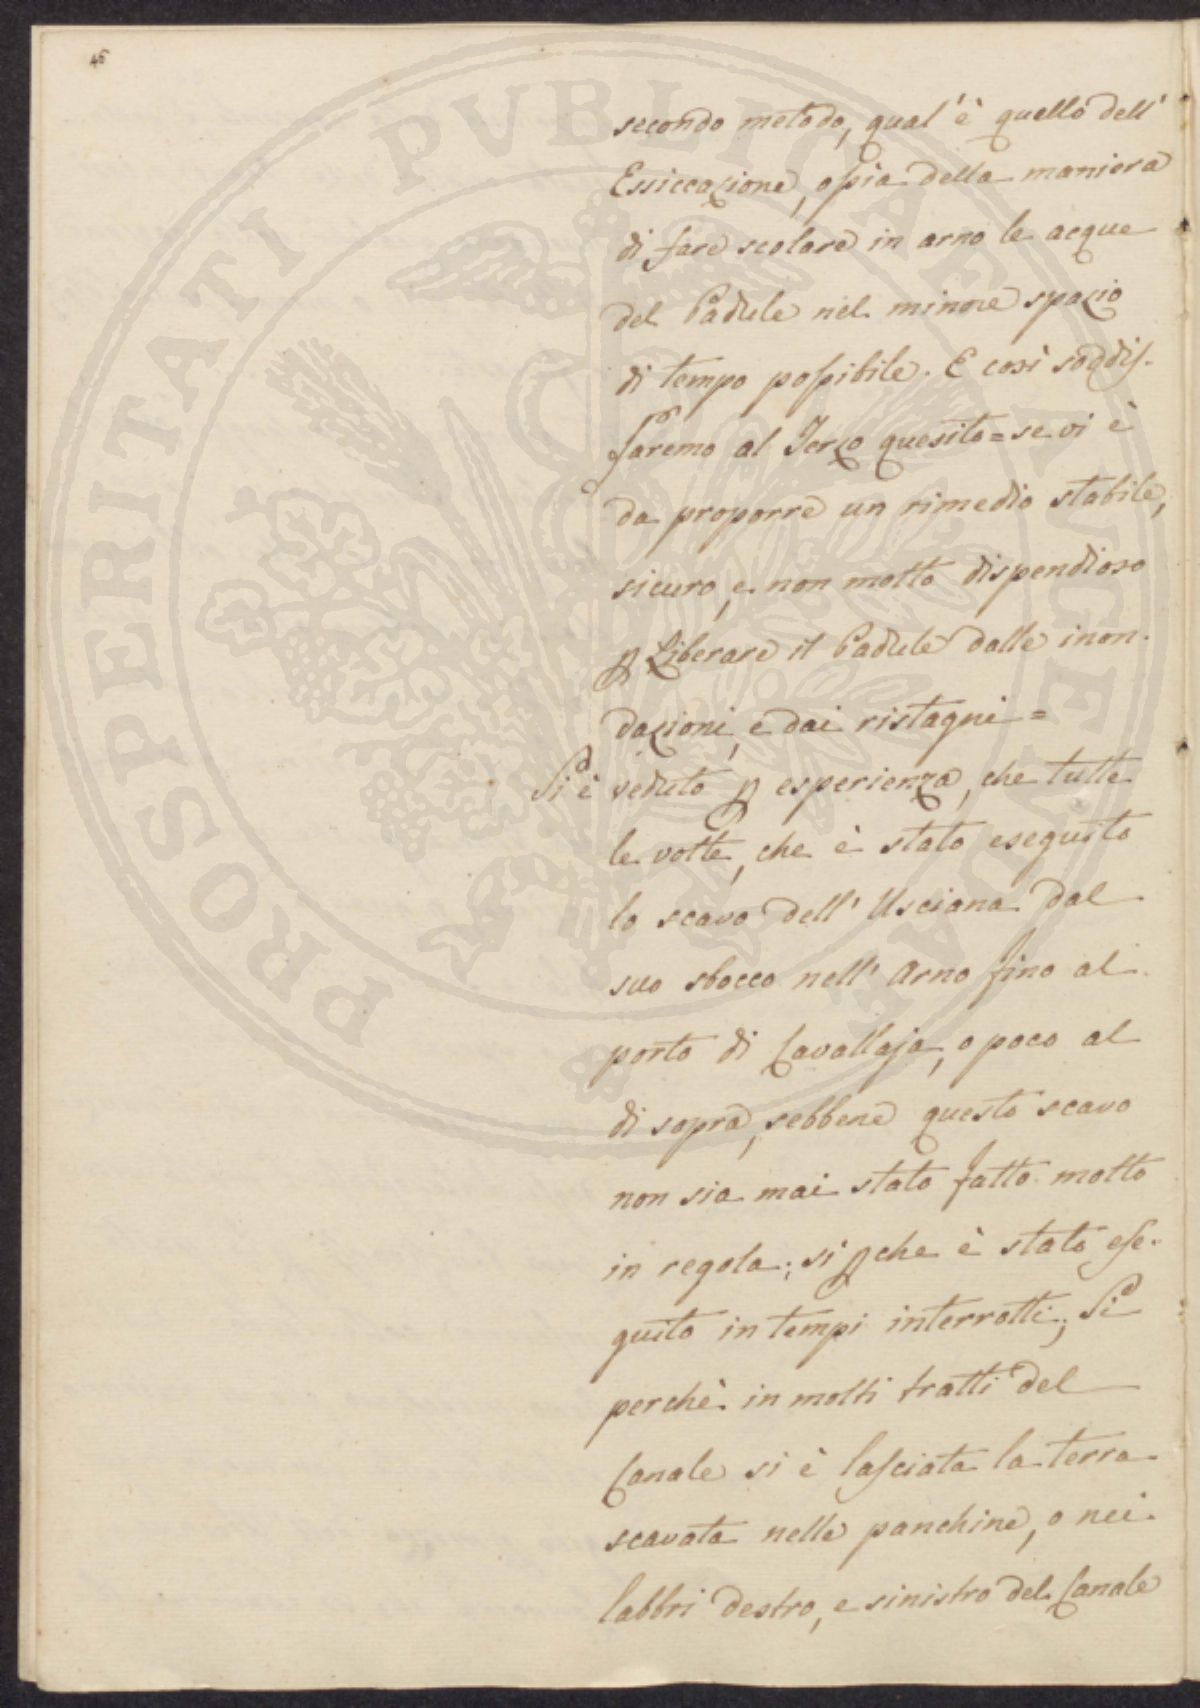 46
secondo metodo, qual'è quello dell'
Essiccazione, ossia della maniera
di fare scolare in arno le acque
del Padule nel minore spazio
di tempo possibile. E così soddis-
faremo al Terzo quesito = se vi è
da proporre un rimedio stabile,
sicuro, e non molto dispendioso
p Liberare il Padule dalle inon-
dazioni, e dai ristagni =
Si è veduto p esperienza, che tutte
le volte, che è stato eseguito
lo scavo dell' Usciana dal
suo sbocco nell' Arno fino al
porto di Cavallaja, o poco al
di sopra, sebbene questo scavo
non sia mai stato fatto molto
in regola; sì pchè è stato ese-
guito in tempi interrotti; Si
perchè in molti tratti del
Canale si è lasciata la terra
scavata nelle panchine, o nei
labbri destro, e sinistro del Canale
PROSPERITATI PVBLICAE AVGENDAE